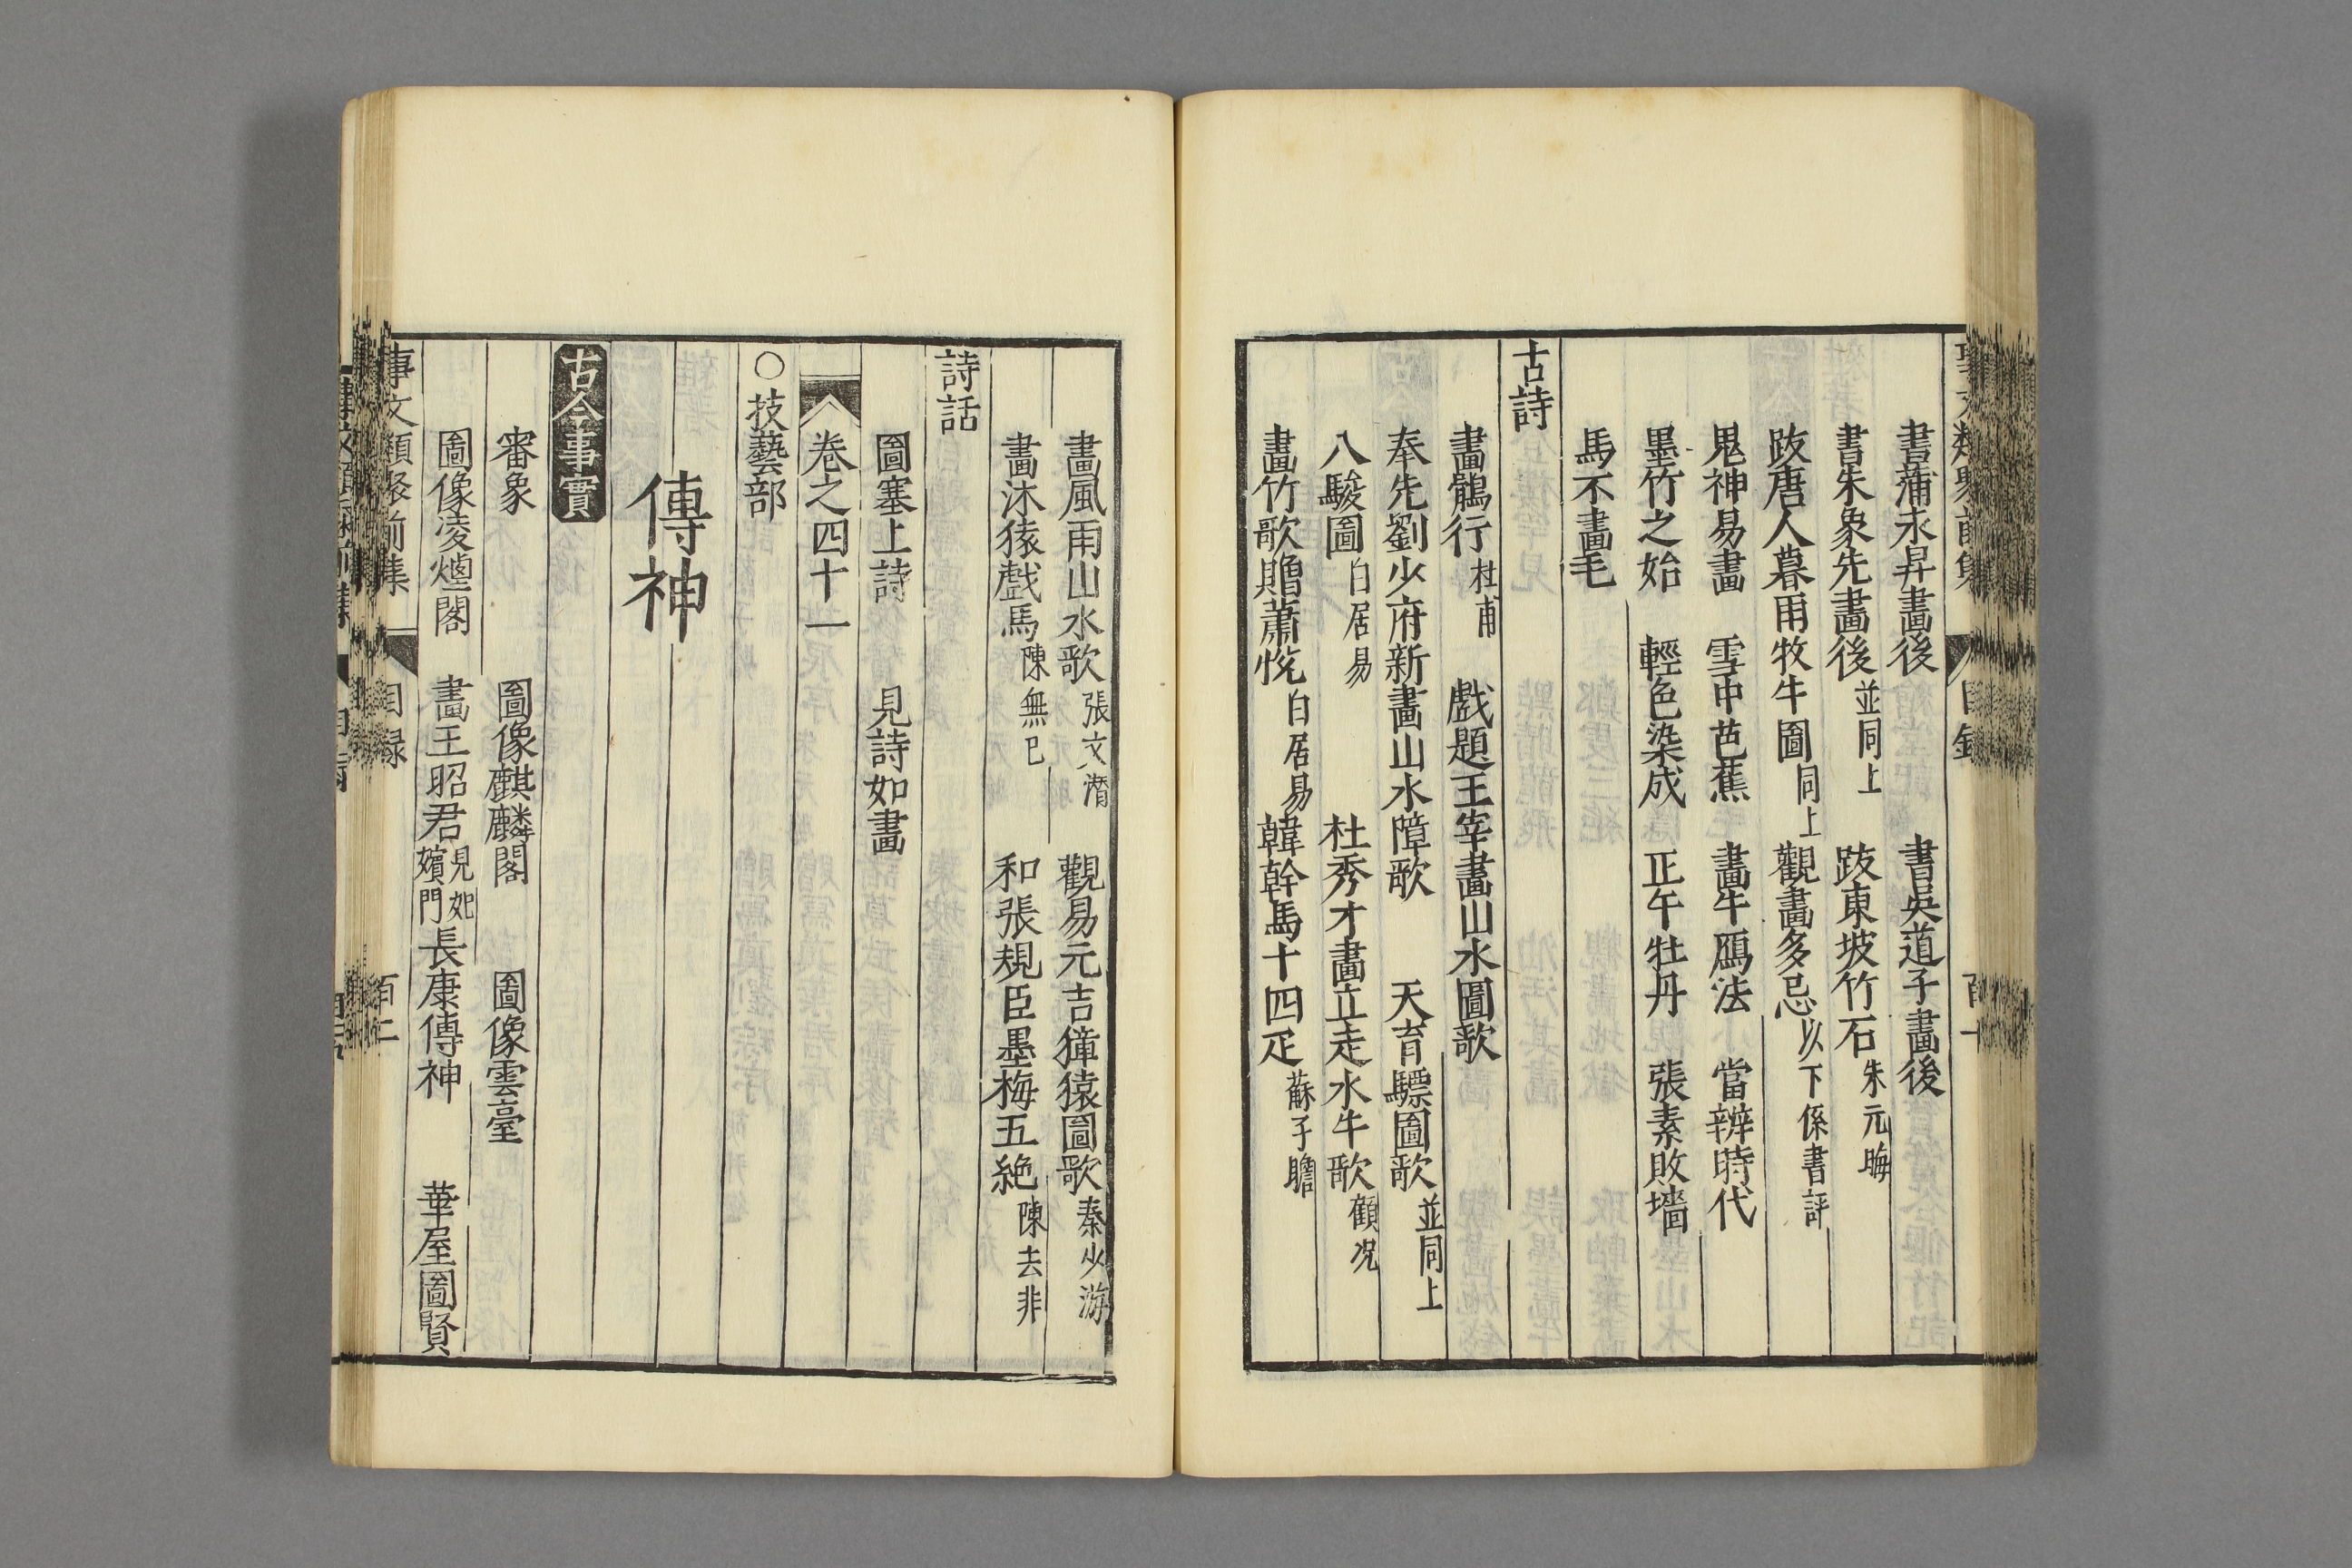 書蒲永昇畫後 書吳道子畫後
書朱象先畫後 並同上 跋東坡竹石 朱元晦
跋唐人暮雨牧牛圖 同上 觀畫多忌 以下係書評
鬼神易畫 雪中芭蕉 畫牛鴈法 當辨時代
墨竹之始 輕色染成 正午牡丹 張素敗墻
馬不畫毛
古詩
畫鶻行 杜甫 戲題王宰畫山水圖歌
奉先劉少府新畫山水障歌 天育驃圖歌 並同上
八駿圖 白居易 杜秀才畫立走水牛歌 顧况
畫竹歌贈蕭悅 白居易 韓幹馬十四疋 蘇子瞻
畫風雨山水歌 張文潛 觀易元吉獐猿圖歌 秦少游
畫沐猿戲馬 陳無已 和張規臣墨梅五絶 陳去非
詩話
圖塞上詩 見詩如畫
卷之四十一
○技藝部
傳神
古今事實
審象 圖像麒麟閣 圖像雲臺
圖像凌煙閣 畫王昭君 見妃嬪門 長康傳神 華屋圖賢
事文類聚前集 目録 百二